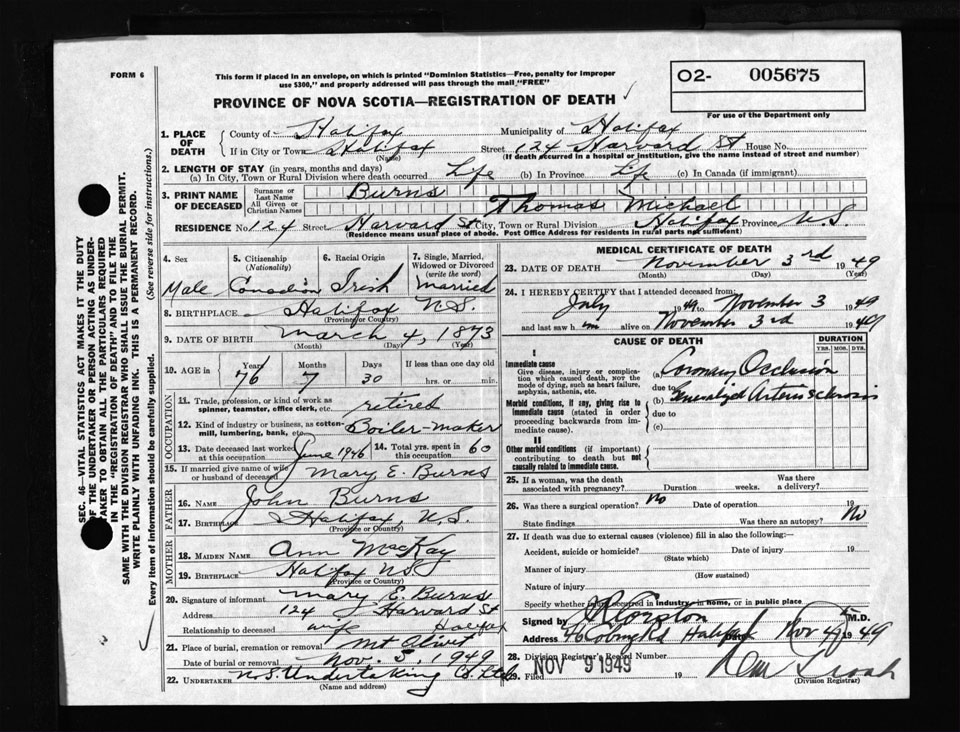 FORM 6
This form if placed in an envelope, on which is printed "Dominion Statistics—Free, penalty for improper
use $300," and properly addressed will pass through the mail "FREE"
PROVINCE OF NOVA SCOTIA—REGISTRATION OF DEATH
O2- 005675
For use of the Department only
1. PLACE OF DEATH
County of Halifax Municipality of Halifax
If in City or Town Halifax Street 124 Harvard St House No.
(Name) (If death occurred in a hospital or institution, give the name instead of street and number)
2. LENGTH OF STAY (in years, months and days)
(a) In City, Town or Rural Division where death occurred Life (b) In Province Life (c) In Canada (if immigrant)
3. PRINT NAME OF DECEASED
Surname or Last Name Burns
All Given or Christian Names Thomas Michael
RESIDENCE No. 124 Street Harvard St City, Town or Rural Division Halifax Province N.S.
(Residence means usual place of abode. Post Office Address for residents in rural parts not sufficient)
4. Sex 5. Citizenship (Nationality) 6. Racial Origin 7. Single, Married, Widowed or Divorced (write the word)
Male Canadian Irish Married
8. BIRTHPLACE Halifax N.S.
(Province or Country)
9. DATE OF BIRTH March 4, 1873
(Month) (Day) (Year)
10. AGE in Years Months Days If less than one day old
76 7 30 hrs. or min.
OCCUPATION
11. Trade, profession or kind of work as spinner, teamster, office clerk, etc. retired
12. Kind of industry or business, as cotton-mill, lumbering, bank, etc. Boiler-maker
13. Date deceased last worked at this occupation June 1946 14. Total yrs. spent in this occupation 60
15. If married give name of wife or husband of deceased Mary E. Burns
FATHER
16. Name John Burns
17. Birthplace Halifax, N.S.
(Province or Country)
MOTHER
18. MAIDEN NAME Ann MacKay
19. BIRTHPLACE Halifax N.S.
(Province or Country)
20. Signature of informant Mary E. Burns
Address 124 Harvard St
Relationship to deceased wife Halifax
21. Place of burial, cremation or removal Mt Olivet
Date of burial or removal Nov. 5, 1949
22. UNDERTAKER N.S. Undertaking Co. Ltd
(Name and address)
MEDICAL CERTIFICATE OF DEATH
23. DATE OF DEATH November 3rd 1949
(Month) (Day) (Year)
24. I HEREBY CERTIFY that I attended deceased from:
July 1949 to November 3 1949
and last saw him alive on November 3rd 1949
CAUSE OF DEATH DURATION
YRS. MOS. DYS.
I
Immediate cause
Give disease, injury or complication which caused death, NOT the mode of dying, such as heart failure, asphyxia, asthenia, etc.
(a) Coronary Occlusion
due to
Morbid conditions, if any, giving rise to immediate cause (stated in order proceeding backwards from immediate cause).
(b) Generalized Arteriosclerosis
due to
(c)
II
Other morbid conditions (if important) contributing to death but not causally related to immediate cause.
25. If a woman, was the death associated with pregnancy? Duration weeks. Was there a delivery?
26. Was there a surgical operation? No Date of operation 19
State findings Was there an autopsy? No
27. If death was due to external causes (violence) fill in also the following:—
Accident, suicide or homicide? Date of injury 19
(State which)
Manner of injury
(How sustained)
Nature of injury
Specify whether injury occurred in industry, in home, or in public place
Signed by M.D.
Address 46 Coburg Rd Halifax Nov 4 1949
28. Division Registrar's Record Number
29. Filed NOV 9 1949 19
(Division Registrar)
SEC. 46—VITAL STATISTICS ACT MAKES IT THE DUTY
OF THE UNDERTAKER OR PERSON ACTING AS UNDER-
TAKER TO OBTAIN ALL THE PARTICULARS REQUIRED
IN THE "REGISTRATION OF DEATH" AND TO FILE THE
SAME WITH THE DIVISION REGISTRAR WHO SHALL ISSUE THE BURIAL PERMIT.
WRITE PLAINLY WITH UNFADING INK. THIS IS A PERMANENT RECORD.
Every item of information should be carefully supplied. (See reverse side for instructions.)